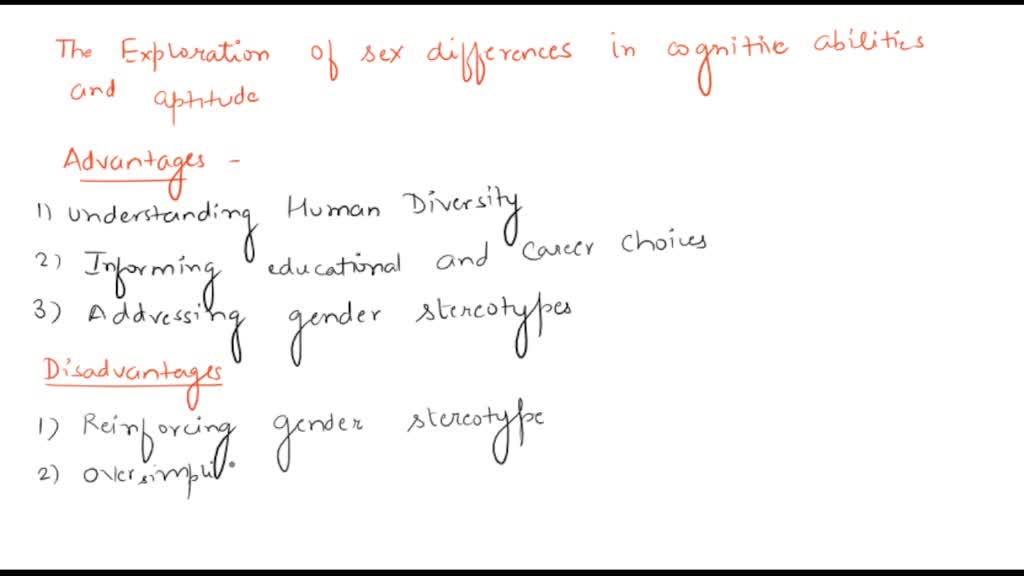 The Exploration of sex differences in cognitive abilities
and aptitude
Advantages -
1) Understanding Human Diversity
2) Informing educational and career choices
3) Addressing gender stereotypes
Disadvantages
1) Reinforcing gender stereotype
2) Oversimpli